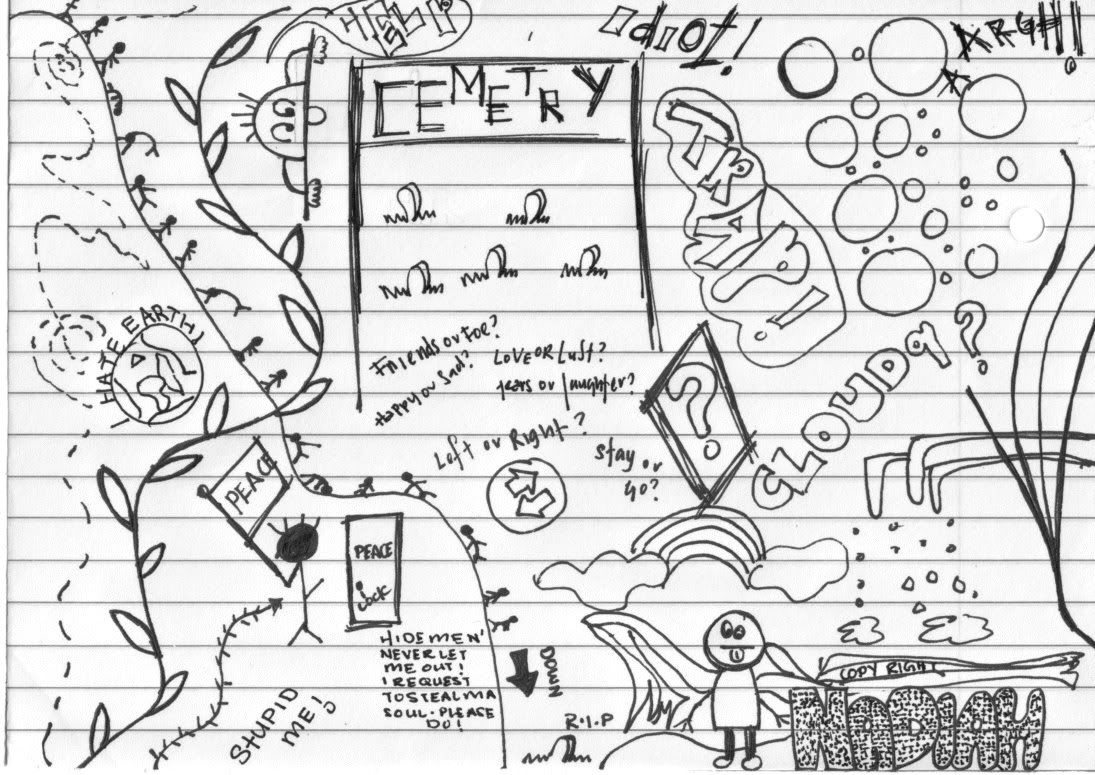 HELP
Idiot!
ARGH!!
CEMETRY
HATE EARTH!
Friends or Foe?
Happy or Sad?
LOVE OR Lust?
tears or laughter?
Left or Right?
stay or
go?
?
CLOUDY?
PEACE
PEACE
LOCK
HIDE MEN'
NEVER LET
ME OUT!
I REQUEST
TO STEAL MA
SOUL. PLEASE
DO!
STUPID
ME!
DOWN
R.I.P
COPY RIGHT
NADIAH